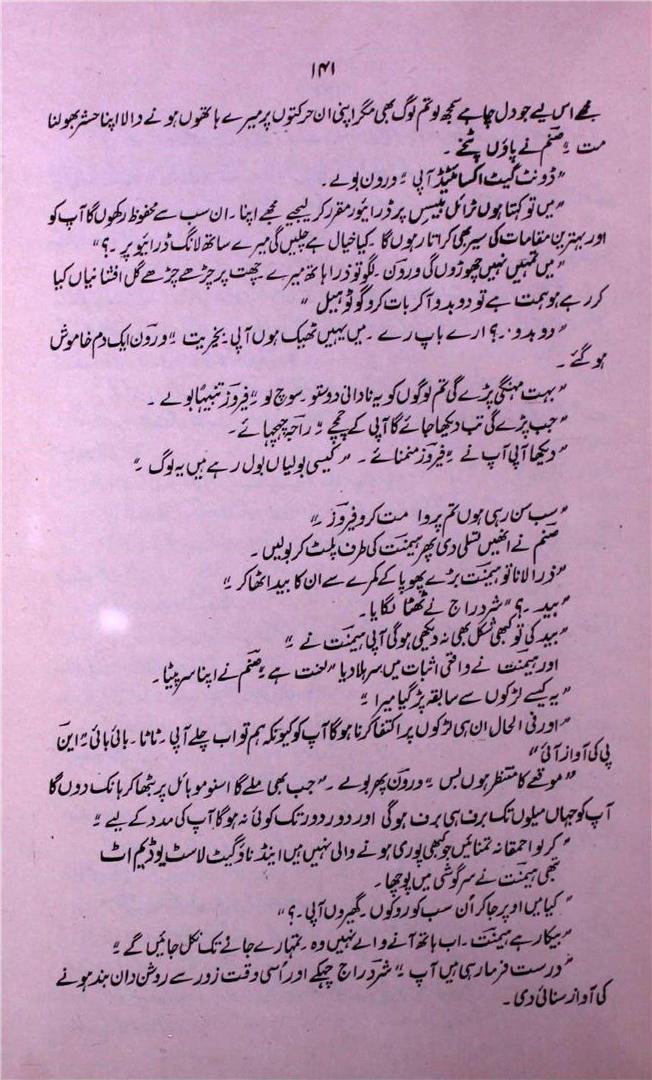 ۱۴۱
مجھے اس لیے جو دل چاہے سمجھ لو تم لوگ بھی مگر اپنی ان حرکتوں پر میرے ہاتھوں ہونے والا اپنا حشر بھولنا
مت ؛ صنم نے پاؤں پٹخے ۔
” ڈونٹ گیٹ اکسائیٹڈ آپی ؛“ ورون بولے ۔
” میں تو کہتا ہوں ٹرائل بیسس پر ڈرائیور مقرر کر لیجیے مجھے اپنا ۔ ان سب سے محفوظ رکھوں گا آپ کو
اور بہترین مقامات کی سیر بھی کراتا رہوں گا ۔ کیا خیال ہے چلیں گی میرے ساتھ لانگ ڈرائیو پر ۔؟ “
” میں تمہیں نہیں چھوڑوں گی ورون ۔ لگو تو ذرا ہاتھ میرے ۔ چھت پر چڑھے چڑھے گل افشانیاں کیا
کر رہے ہو ہمت ہے تو دو بدو آ کر بات کرو گو ٹو ہیل “
” دو بدو ۔؟ ارے باپ رے ۔ میں یہیں ٹھیک ہوں آپی ۔ بخیریت ؛“ ورون ایک دم خاموش
ہو گئے ۔
” بہت مہنگی پڑے گی تم لوگوں کو یہ نادانی دوستو ۔ سوچ لو ؛“ فیروز تنبیہاً بولے ۔
” جب پڑے گی تب دیکھا جائے گا آپی کے چمچے ؛“ راجہ چہچہائے ۔
” دیکھا آپی آپ نے ؛“ فیروز منمنائے ۔ ” کیسی بولیاں بول رہے ہیں یہ لوگ ؛“
” سب سن رہی ہوں تم پروا مت کرو فیروز ؛“
صنم نے انھیں تسلی دی پھر ہیمنت کی طرف پلٹ کر بولیں ۔
” ذرا لانا تو ہیمنت بڑے پھوپا کے کمرے سے ان کا بید اٹھا کر ؛“
” بید ۔؟ “ شردراج نے ٹھٹا لگایا ۔
” بید کی تو کبھی شکل بھی نہ دیکھی ہوگی آپی ہیمنت نے ؛“
اور ہیمنت نے واقعی اثبات میں سر ہلا دیا ” لعنت ہے ؛“ صنم نے اپنا سر پیٹا ۔
” یہ کیسے لڑکوں سے سابقہ پڑ گیا میرا ؛“
” اور فی الحال ان ہی لڑکوں پر اکتفا کرنا ہوگا آپ کو کیونکہ ہم تو اب چلے آپی ۔ ٹاٹا ۔ بائی بائی ؛“ این
پی کی آواز آئی “
” موقعے کا منتظر ہوں بس ؛“ ورون پھر بولے ۔ ” جب بھی ملے گا اسنو موبائل پر بٹھا کر ہانک دوں گا
آپ کو جہاں میلوں تک برف ہی برف ہوگی اور دور دور تک کوئی نہ ہوگا آپ کی مدد کے لیے ؛“
” کر لو احمقانہ تمنائیں جو کبھی پوری ہونے والی نہیں ہیں اینڈ ناؤ گیٹ لاسٹ یو ڈیم اٹ
تبھی ہیمنت نے سرگوشی میں پوچھا ۔
” کیا میں اوپر جا کر اُن سب کو روکوں ۔ گھیروں آپی ۔؟ “
” بیکار ہے ہیمنت ۔ اب ہاتھ آنے والے نہیں وہ ۔ تمہارے جانے تک نکل جائیں گے ؛“
” درست فرما رہی ہیں آپ ؛“ شردراج چہکے اور اُسی وقت زور سے روشن دان بند ہونے
کی آواز سنائی دی ۔